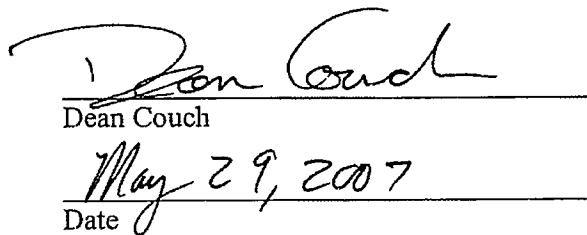 Dean Couch
Dean Couch
May 29, 2007
Date